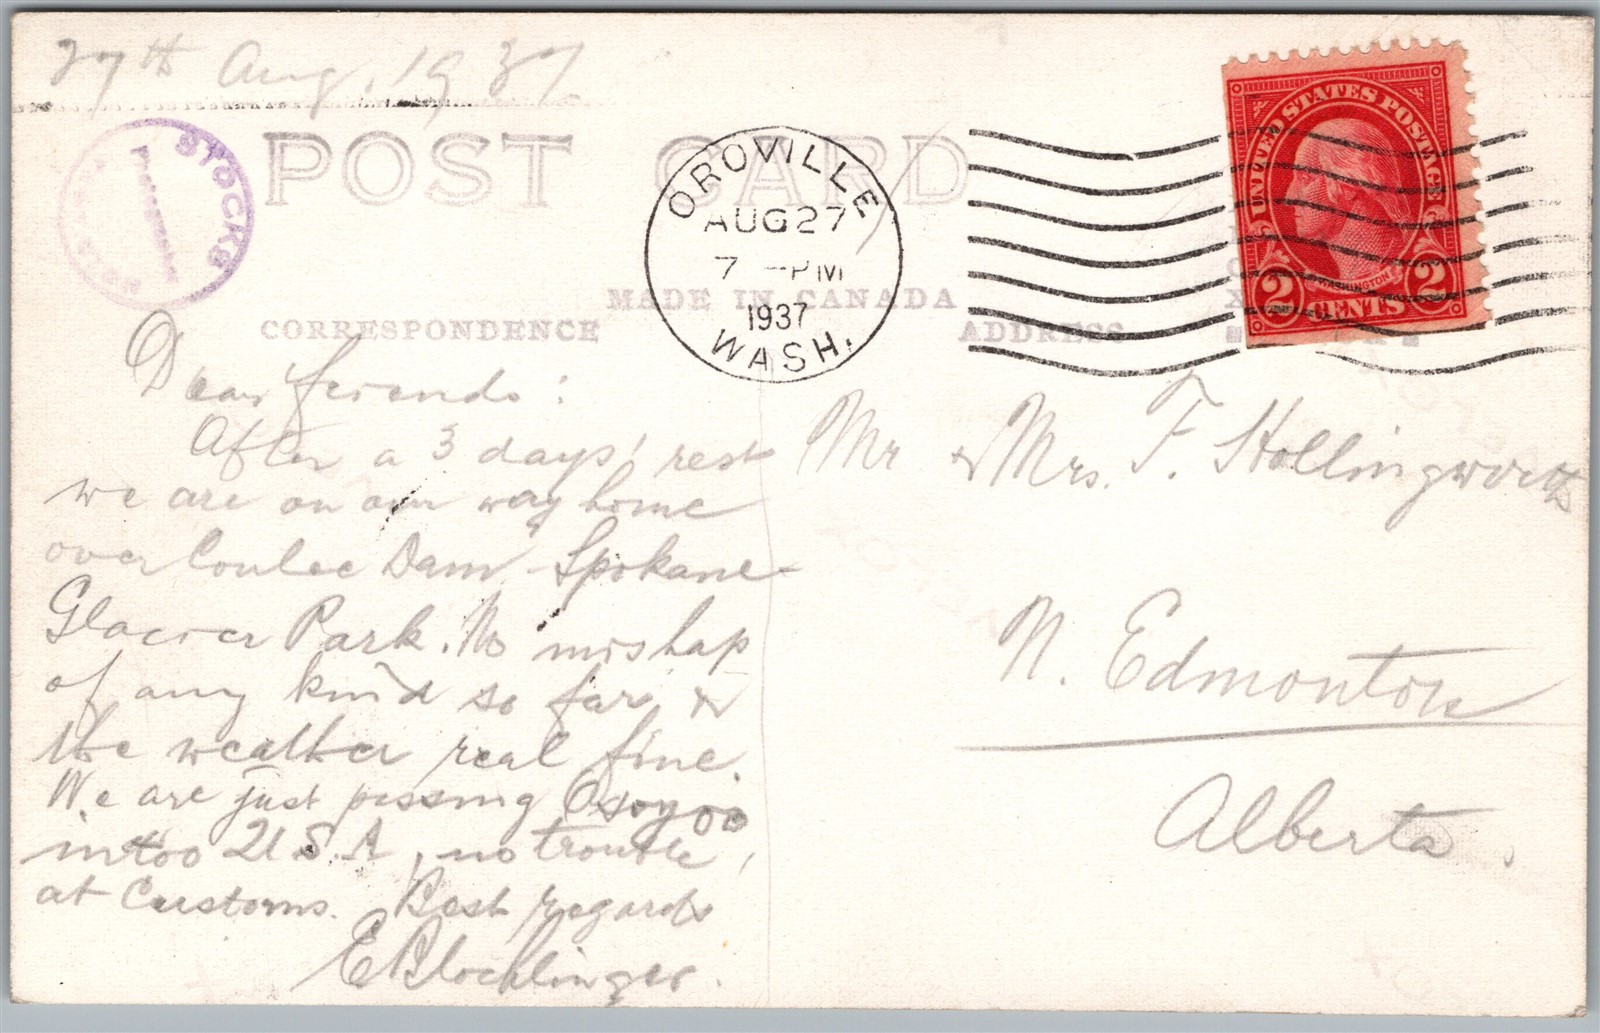 27th Aug. 1937
POST CARD
STOCKS
Photographer
OROVILLE
AUG 27
7 -PM
1937
WASH.
UNITED STATES POSTAGE
WASHINGTON
2 CENTS 2
MADE IN CANADA
CORRESPONDENCE
ADDRESS
Dear friends:
After a 3 days' rest
we are on our way home
over Coulee Dam Spokane-
Glacier Park. No mishap
of any kind so far &
the weather real fine.
We are just passing Osoyoo
intoo U.S.A, no trouble,
at Customs. Best regards
E Blochlinger.
Mr & Mrs. F. Hollingworth
N. Edmonton
Alberta.